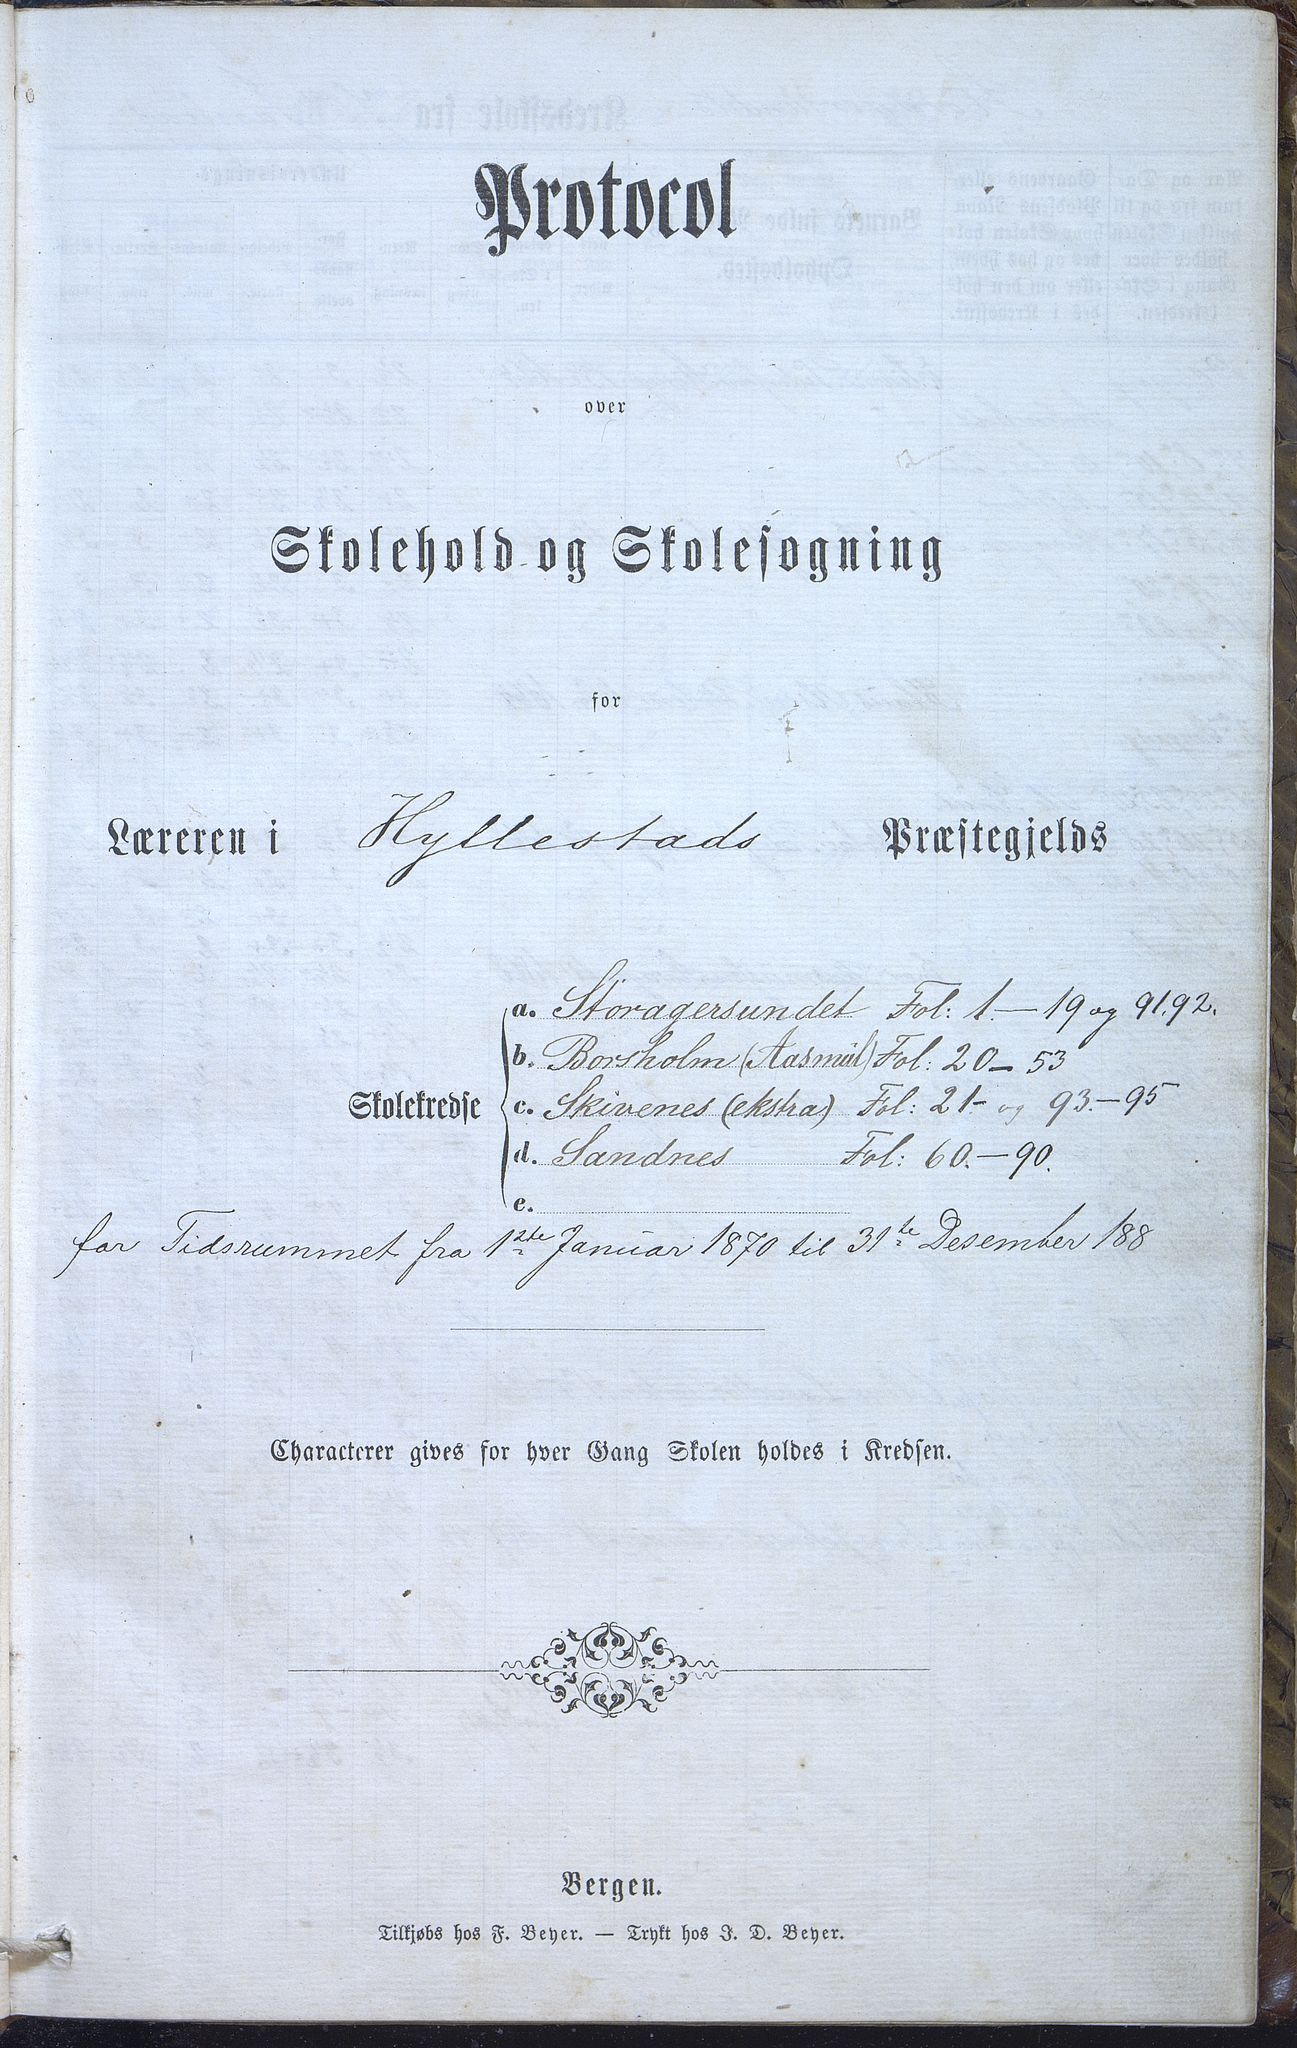 Protocol
over
Skolehold og Skolesøgning
for
Læreren i Hyllestads Præstegjelds
a. Storagersundet Fol: 1.—19 og 91.92.
b. Borsholm (Aasmul) Fol: 20—53
Skolekredse c. Skivenes (ekstra) Fol: 21— og 93.—95
d. Sandnes Fol: 60.—90.
e.
for Tidsrummet fra 1ste Januar 1870 til 31te Desember 188
Characterer gives for hver Gang Skolen holdes i Kredsen.
Bergen.
Tilkjøbs hos F. Beyer. — Trykt hos J. D. Beyer.